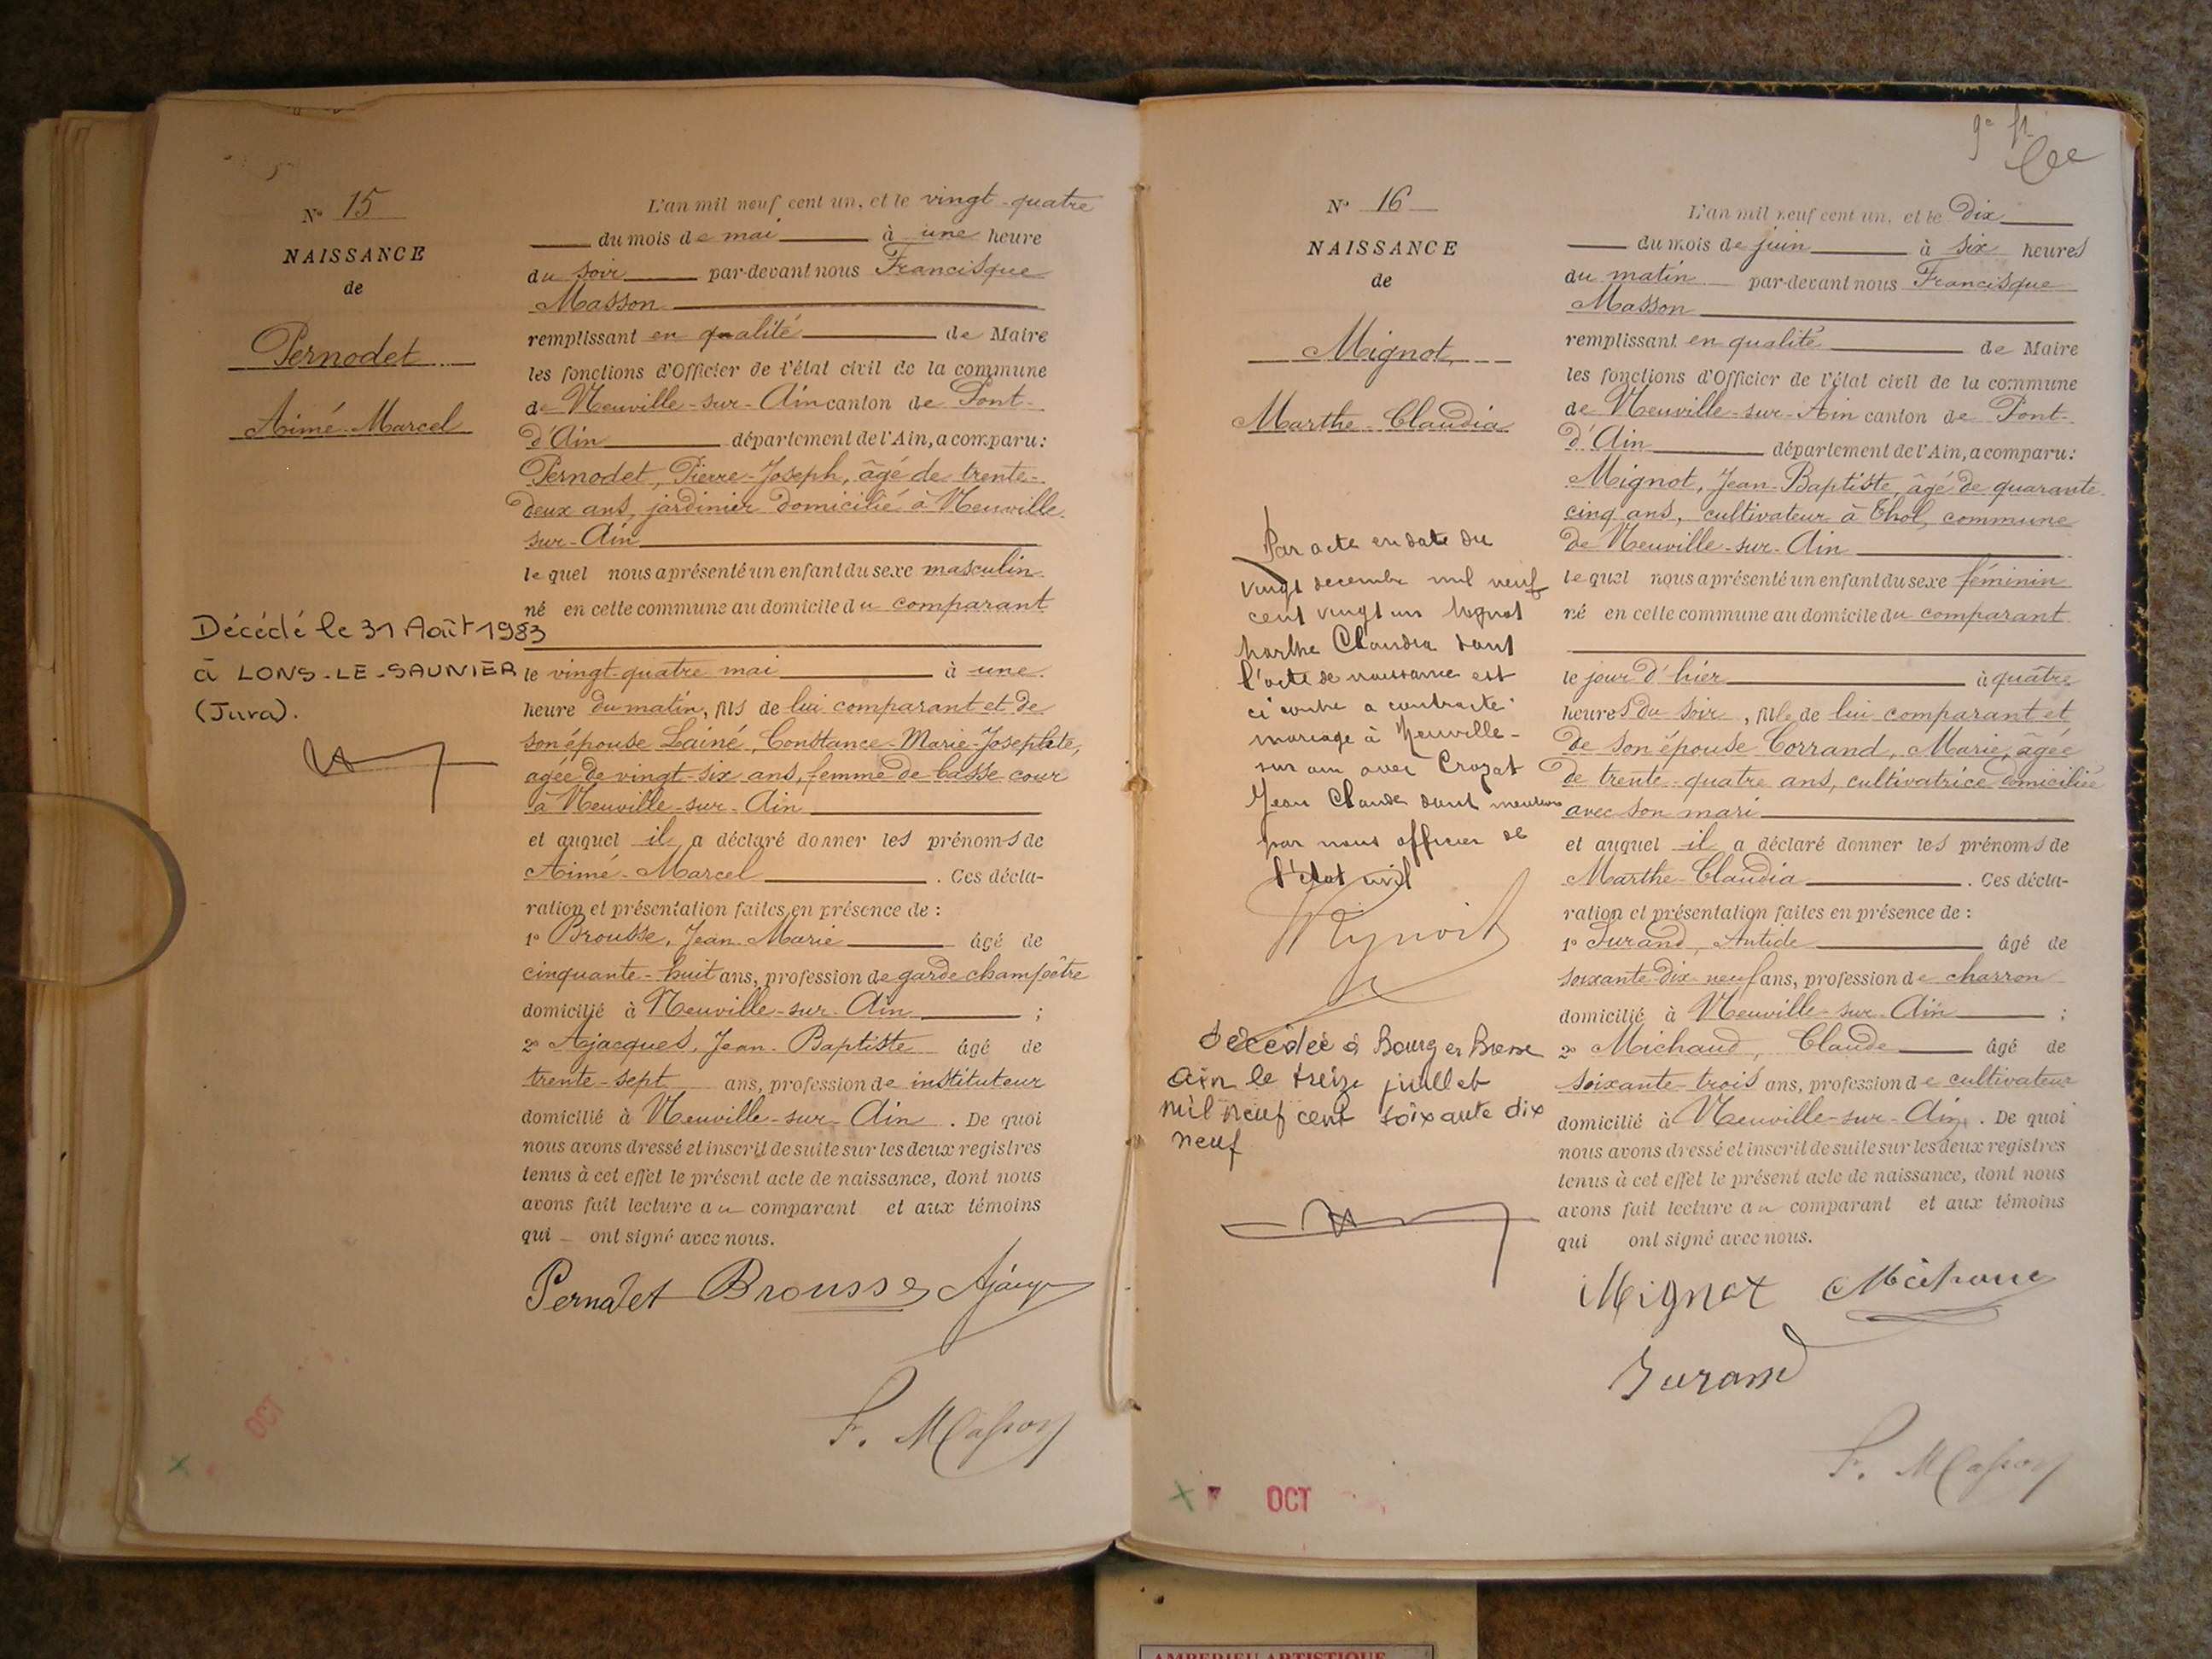 N° 15
NAISSANCE
de
Pernodet
Aimé-Marcel
Décédé le 31 Août 1983
à LONS-LE-SAUNIER
(Jura).
L'an mil neuf cent un, et le vingt-quatre
du mois de mai à une heure
du soir par-devant nous Francisque
Masson
remplissant en qualité de Maire
les fonctions d'Officier de l'état civil de la commune
de Neuville-sur-Ain canton de Pont-
d'Ain département de l'Ain, a comparu :
Pernodet, Pierre-Joseph, âgé de trente-
deux ans, jardinier domicilié à Neuville-
sur-Ain
lequel nous a présenté un enfant du sexe masculin
né en cette commune au domicile du comparant
le vingt-quatre mai à une
heure du matin, fils de lui comparant et de
son épouse Lainé, Constance-Marie-Josephte,
agée de vingt-six ans, femme de basse cour
à Neuville-sur-Ain
et auquel il a déclaré donner les prénoms de
Aimé-Marcel . Ces décla-
ration et présentation faites en présence de :
1° Brousse, Jean-Marie âgé de
cinquante-huit ans, profession de garde champêtre
domicilié à Neuville-sur-Ain ;
2° Ajacques, Jean-Baptiste âgé de
trente-sept ans, profession de instituteur
domicilié à Neuville-sur-Ain . De quoi
nous avons dressé et inscrit de suite sur les deux registres
tenus à cet effet le présent acte de naissance, dont nous
avons fait lecture au comparant et aux témoins
qui ont signé avec nous.
Pernodet Brousse Ajacques
F. Masson
OCT
N° 16
NAISSANCE
de
Mignot,
Marthe-Claudia
Par acte en date du
vingt decembre mil neuf
cent vingt un Mignot
Marthe Claudia dont
l'acte de naissance est
ci contre a contracté
mariage à Neuville-
sur ain avec Crozat
Jean Claude dont mention
par nous officier de
l'état civil
décédée à Bourg en Bresse
Ain le treize juillet
mil neuf cent soixante dix
neuf
L'an mil neuf cent un, et le dix
du mois de juin à six heures
du matin par-devant nous Francisque
Masson
remplissant en qualité de Maire
les fonctions d'Officier de l'état civil de la commune
de Neuville-sur-Ain canton de Pont-
d'Ain département de l'Ain, a comparu :
Mignot, Jean-Baptiste, âgé de quarante-
cinq ans, cultivateur à Thol, commune
de Neuville-sur-Ain
lequel nous a présenté un enfant du sexe féminin
né en cette commune au domicile du comparant
le jour d'hier à quatre
heures du soir, fille de lui comparant et
de son épouse Corrand, Marie, âgée
de trente-quatre ans, cultivatrice domiciliée
avec son mari
et auquel il a déclaré donner les prénoms de
Marthe-Claudia . Ces décla-
ration et présentation faites en présence de :
1° Durand, Antide âgé de
soixante-dix-neuf ans, profession de charron
domicilié à Neuville-sur-Ain ;
2° Michaud, Claude âgé de
soixante-trois ans, profession de cultivateur
domicilié à Neuville-sur-Ain . De quoi
nous avons dressé et inscrit de suite sur les deux registres
tenus à cet effet le présent acte de naissance, dont nous
avons fait lecture au comparant et aux témoins
qui ont signé avec nous.
Mignot Michaud
Durand
F. Masson
OCT
AMBERIEU ARTISTIQUE